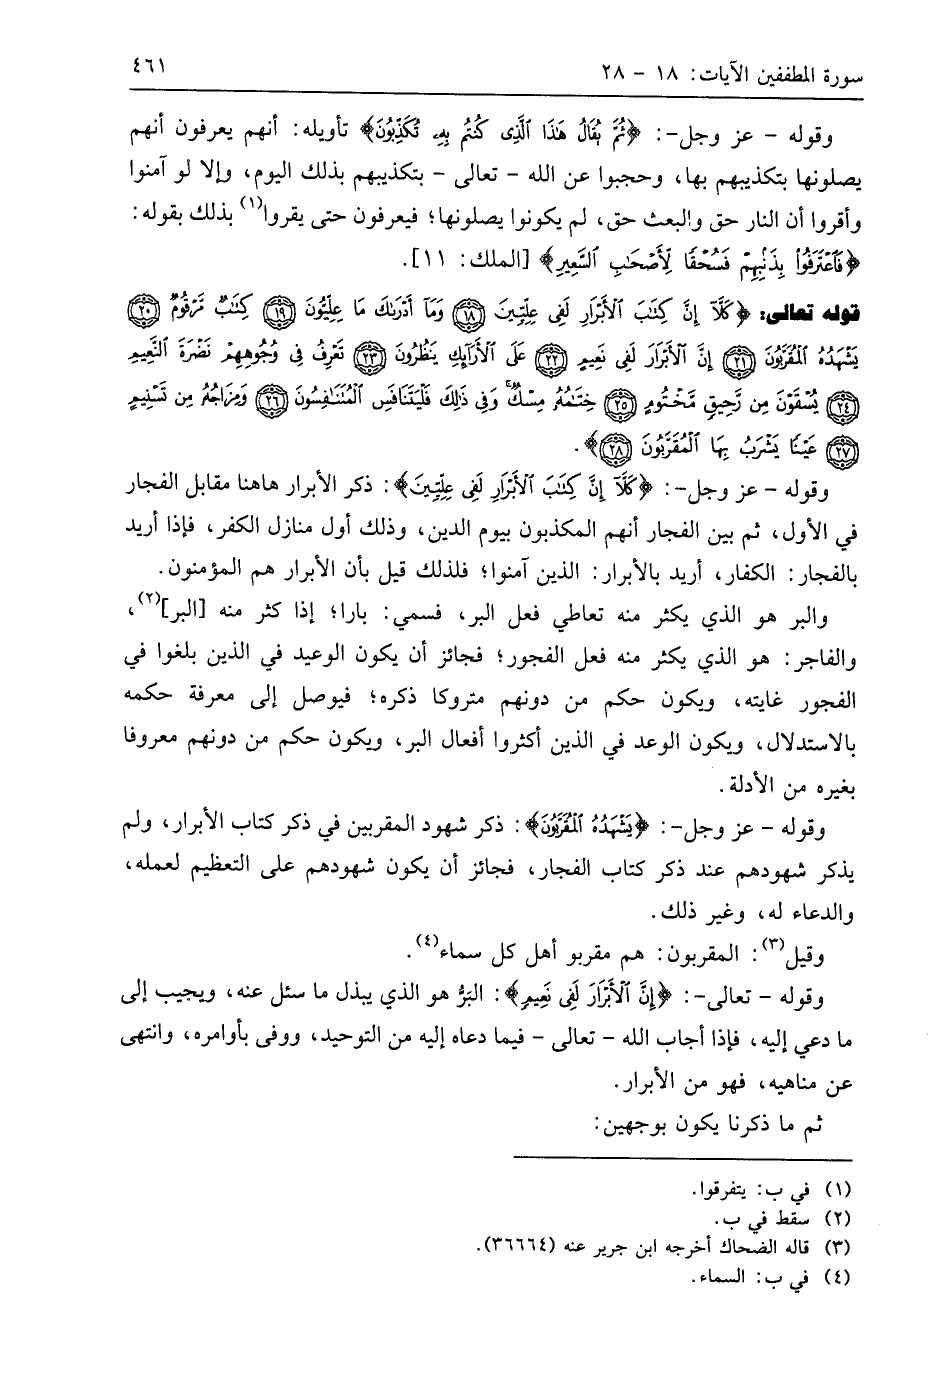 سورة المطففين الآيات: ١٨ - ٢٨
٤٦١
وقوله - عز وجل-: ﴿ثُمَّ يُقَالُ هَٰذَا ٱلَّذِى كُنتُم بِهِۦ تُكَذِّبُونَ﴾ تأويله: أنهم يعرفون أنهم
يصلونها بتكذيبهم بها، وحجبوا عن الله - تعالى - بتكذيبهم بذلك اليوم، وإلا لو آمنوا
وأقروا أن النار حق والبعث حق، لم يكونوا يصلونها؛ فيعرفون حتى يقروا(١) بذلك بقوله:
﴿فَٱعْتَرَفُوا۟ بِذَنۢبِهِمْ فَسُحْقًا لِّأَصْحَٰبِ ٱلسَّعِيرِ﴾ [الملك: ١١].
قوله تعالى: ﴿كَلَّآ إِنَّ كِتَٰبَ ٱلْأَبْرَارِ لَفِى عِلِّيِّينَ ﴿١٨﴾ وَمَآ أَدْرَىٰكَ مَا عِلِّيُّونَ ﴿١٩﴾ كِتَٰبٌ مَّرْقُومٌ ﴿٢٠﴾
يَشْهَدُهُ ٱلْمُقَرَّبُونَ ﴿٢١﴾ إِنَّ ٱلْأَبْرَارَ لَفِى نَعِيمٍ ﴿٢٢﴾ عَلَى ٱلْأَرَآئِكِ يَنظُرُونَ ﴿٢٣﴾ تَعْرِفُ فِى وُجُوهِهِمْ نَضْرَةَ ٱلنَّعِيمِ
﴿٢٤﴾ يُسْقَوْنَ مِن رَّحِيقٍ مَّخْتُومٍ ﴿٢٥﴾ خِتَٰمُهُۥ مِسْكٌ ۚ وَفِى ذَٰلِكَ فَلْيَتَنَافَسِ ٱلْمُتَنَٰفِسُونَ ﴿٢٦﴾ وَمِزَاجُهُۥ مِن تَسْنِيمٍ
﴿٢٧﴾ عَيْنًا يَشْرَبُ بِهَا ٱلْمُقَرَّبُونَ ﴿٢٨﴾﴾.
وقوله - عز وجل-: ﴿كَلَّآ إِنَّ كِتَٰبَ ٱلْأَبْرَارِ لَفِى عِلِّيِّينَ﴾: ذكر الأبرار هاهنا مقابل الفجار
في الأول، ثم بين الفجار أنهم المكذبون بيوم الدين، وذلك أول منازل الكفر، فإذا أريد
بالفجار: الكفار، أريد بالأبرار: الذين آمنوا؛ فلذلك قيل بأن الأبرار هم المؤمنون.
والبر هو الذي يكثر منه تعاطي فعل البر، فسمي: بارا؛ إذا كثر منه [البر](٢)،
والفاجر: هو الذي يكثر منه فعل الفجور؛ فجائز أن يكون الوعيد في الذين بلغوا في
الفجور غايته، ويكون حكم من دونهم متروكا ذكره؛ فيوصل إلى معرفة حكمه
بالاستدلال، ويكون الوعد في الذين أكثروا أفعال البر، ويكون حكم من دونهم معروفا
بغيره من الأدلة.
وقوله - عز وجل-: ﴿يَشْهَدُهُ ٱلْمُقَرَّبُونَ﴾: ذكر شهود المقربين في ذكر كتاب الأبرار، ولم
يذكر شهودهم عند ذكر كتاب الفجار، فجائز أن يكون شهودهم على التعظيم لعمله،
والدعاء له، وغير ذلك.
وقيل(٣): المقربون: هم مقربو أهل كل سماء(٤).
وقوله - تعالى-: ﴿إِنَّ ٱلْأَبْرَارَ لَفِى نَعِيمٍ﴾: البَرُّ هو الذي يبذل ما سئل عنه، ويجيب إلى
ما دعي إليه، فإذا أجاب الله - تعالى - فيما دعاه إليه من التوحيد، ووفى بأوامره، وانتهى
عن مناهيه، فهو من الأبرار.
ثم ما ذكرنا يكون بوجهين:
(١) في ب: يتفرقوا.
(٢) سقط في ب.
(٣) قاله الضحاك أخرجه ابن جرير عنه (٣٦٦٦٤).
(٤) في ب: السماء.